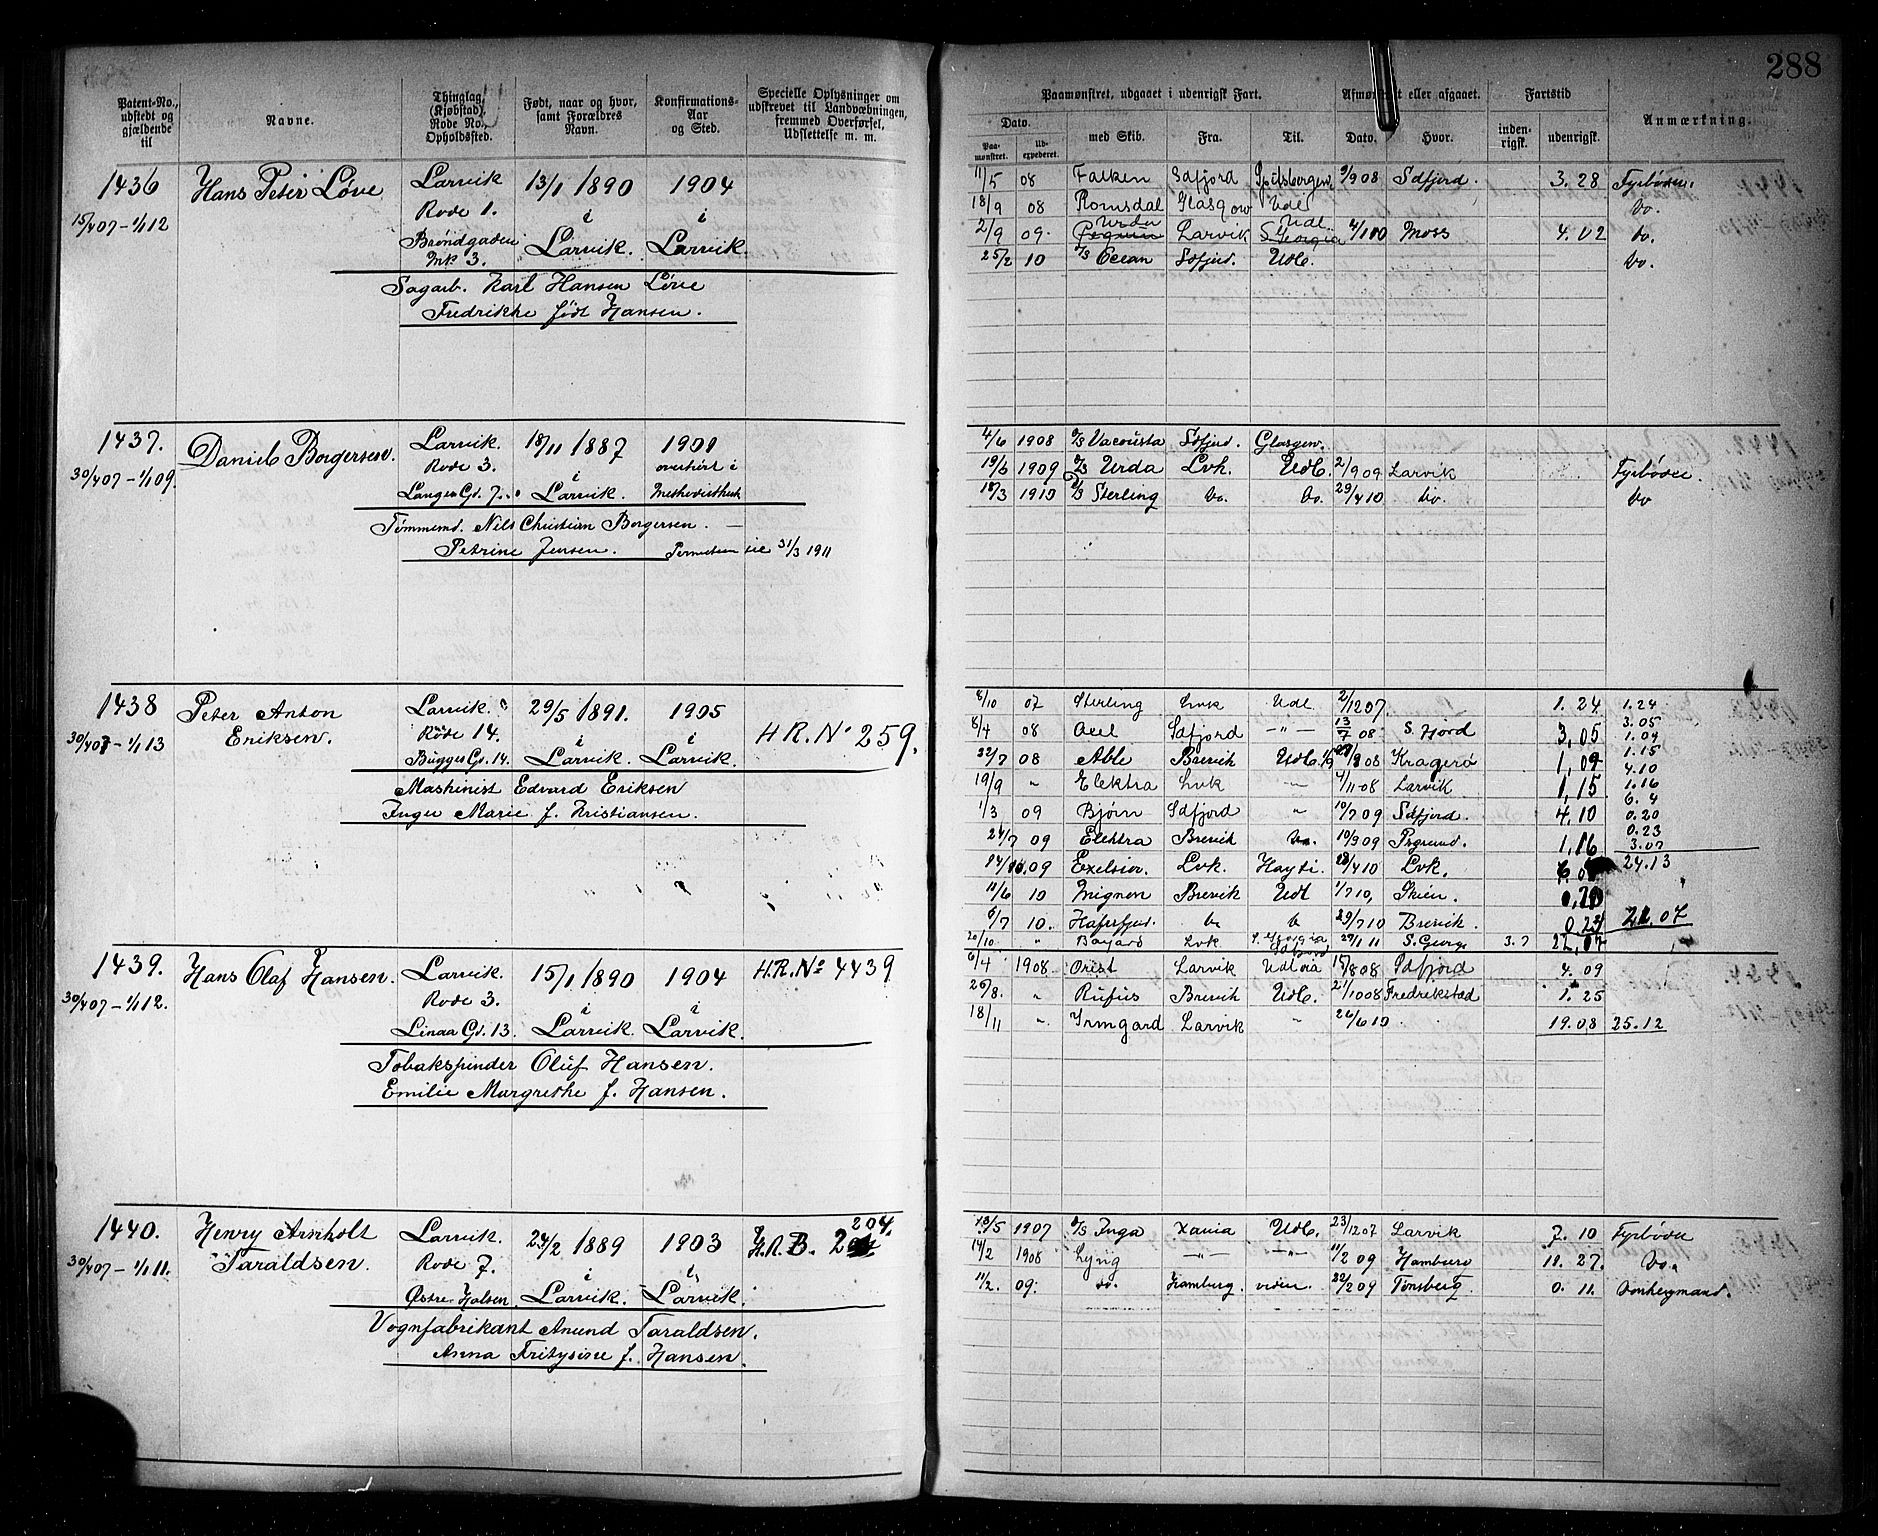 288
Patent-No., udstedt og gjældende til
Navne.
Thinglag, (Kjøbstad), Rode No., Opholdssted.
Født, naar og hvor, samt Forældres Navn.
Konfirmations-Aar og Sted.
Specielle Oplysninger om udskrevet til Landvæbningen, fremmed Overførsel, Udslettelse m. m.
Paamønstret, udgaaet i udenrigsk Fart.
Afmønstret eller afgaaet.
Fartstid
Anmærkning.
Dato.
Paa-mønstret.
Ud-expederet.
med Skib.
Fra.
Til.
Dato.
Hvor.
inden-rigsk.
udenrigsk.
1436 Hans Peter Løve Larvik 13/1 1890 1904
15/4 07 - 1/1 12 Rode 1. i i
Brøndgaden Mk 3. Larvik. Larvik.
Sagarb. Karl Hansen Løve
Fredrikke født Hansen.
11/5 08 Falken Sdfjord Spitsbergen 9/9 08 Sdfjord. 3. 28 Fyrbøder.
18/9 08 Romsdal Glasgow Udl Do.
2/9 09. Urda Larvik Udl. S. Georgia Moss 4. 02 Do.
25/2 10 Ocean Sdfjord. Udl. Do.
1437. Daniel Borgersen. Larvik. 18/11 1887 1901
30/4 07 - 1/1 09. Rode 3. i
Langes Gd. 7. Larvik.
Tømmemd. Nils Christian Borgersen.
Petrine Jensen. 31/3 1911
4/6 1908 Sdfjord. Glasgow.
19/6 1909 Urda Lvk. Udl. 2/9 09 Larvik Fyrbøder
18/3 1910 Sterling Do. Do. 29/4 10 Do. Do
1438 Peter Anton Eriksen. Larvik. 29/5 1891. 1905
30/4 07 - 1/1 13 Rode 14. i i H.R. No 259.
Bugges Gd. 14. Larvik. Larvik.
Maskinist Edvard Eriksen
Inger Marie f. Kristiansen.
8/10 07 Sterling Lvk Udl 2/12 07. 1. 24 1.24
8/4 08 Sdfjord -"- 13/7 08 S. Fjord 3,05 3.05
22/7 08 Able Brevik Udl. Kragerø 1,09 1.09
19/9 " Elektra Lvk 4/11 08 Larvik 1,15 1.15
1/3 09 Bjørn Sdfjord " 10/7 09 Sdfjord. 4.10 4.10
24/7 09 Elektra Brevik Do. 10/9 09 Porsgrund. 1,16 1.16
09 Exelsior. Lvk Hayti. Lvk. 6. 4
11/6 10 Mignon Brevik Udl 1/7 10, Skien. 0.20
6/7 10. Hafrsfjord. Do Do 29/7 10 Brevik. 0.23 0.23
3.07
24.13
20/10 " Lvk S. Georgia 27/1 11 S. Georg. 3. 7
1439. Hans Olaf Hansen. Larvik. 15/1 1890 1904 H.R. No 4439
30/4 07 - 1/1 12. Rode 3. i i
Linaa Gd. 13. Larvik. Larvik.
Tobakspinder Oluf Hansen.
Emilie Margrethe f. Hansen.
6/4 1908. Orest Larvik Udl via Sdfjord 15/8 08 Sdfjord 4. 09
26/8. " Rufus Brevik Udl. 21/10 08 Fredrikstad 1. 25
18/11 ". Irmgard Larvik " 26/6 10 19.08 25.12
1440. Henry Arnholt Taraldsen. Larvik. 24/2 1889 1903 H.R.B. 204.
30/4 07 - 1/1 11. Rode 7. i i
Østre Halsen. Larvik. Larvik.
Vognfabrikant Anund Taraldsen.
Anna Fritysine f. Hansen.
18/5 1907 Inga Xania Udl. 23/12 07 Larvik 7. 10 Fyrbøder
14/2 1908 Lyng -"- -"- 11/2 09 Hamburg 11. 27. Do.
11/2. 09. do. Hamburg. viden. 22/2 09 Tønsberg. 0. 11. Donkeymand.